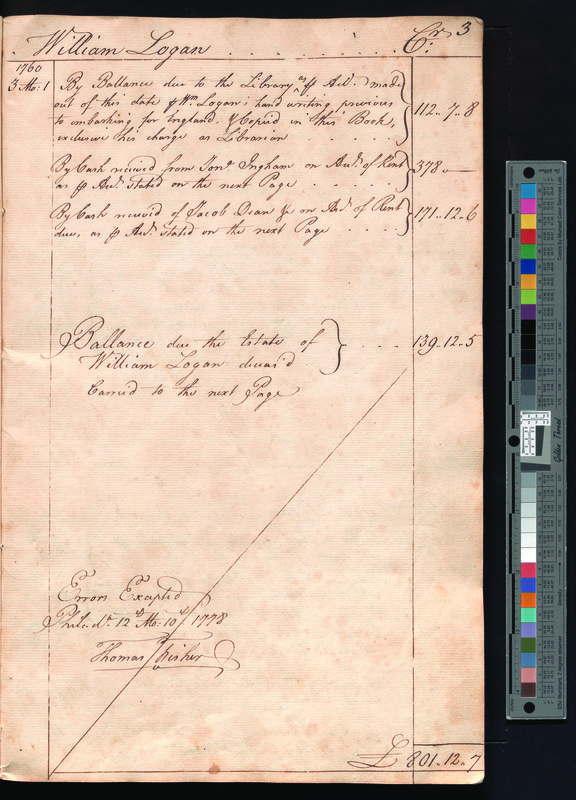 3
William Logan . . . . . . . . Cr.
1760
3 Mo: 1 By Ballance due to the Library as ℔ Acct. made
out of this date ℔ Wm. Logan's hand writing previous
to embarking for England. & Copied in this Book, 112.. 7.. 8
exclusive his charge as Librarian
By Cash received from Jont. Ingham on Acct. of Rent 378.. —
as ℔ Acct. stated on the next Page . . . . .
By Cash receivd of Jacob Dean &c on Acct. of Rent 171.. 12.. 6
due, as ℔ Acct. stated on the next Page . . . .
Ballance due the Estate of . . . 139.. 12.. 5
William Logan deceas'd
Carried to the next Page
Errors Excepted
Philada. 12th Mo: 10th 1778
Thomas Fisher
£ 801.. 12.. 7